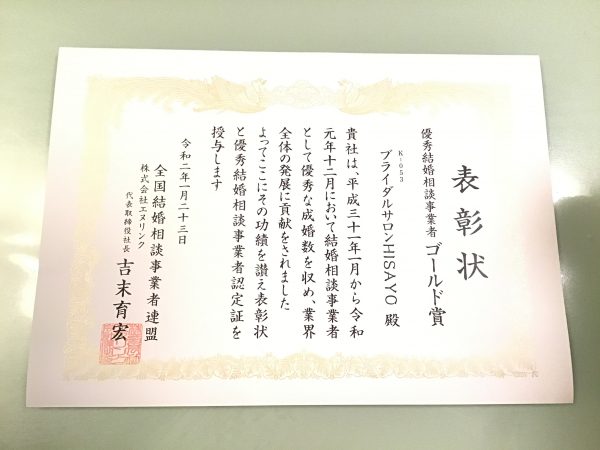 表彰状
優秀結婚相談事業者 ゴールド賞
K-053
ブライダルサロンHISAYO 殿
貴社は、平成三十一年一月から令和
元年十二月において結婚相談事業者
として優秀な成婚数を収め、業界
全体の発展に貢献をされました
よってここにその功績を讃え表彰状
と優秀結婚相談事業者認定証を
授与します
令和二年一月二十三日
全国結婚相談事業者連盟
株式会社エヌリンク
代表取締役社長 吉末育宏